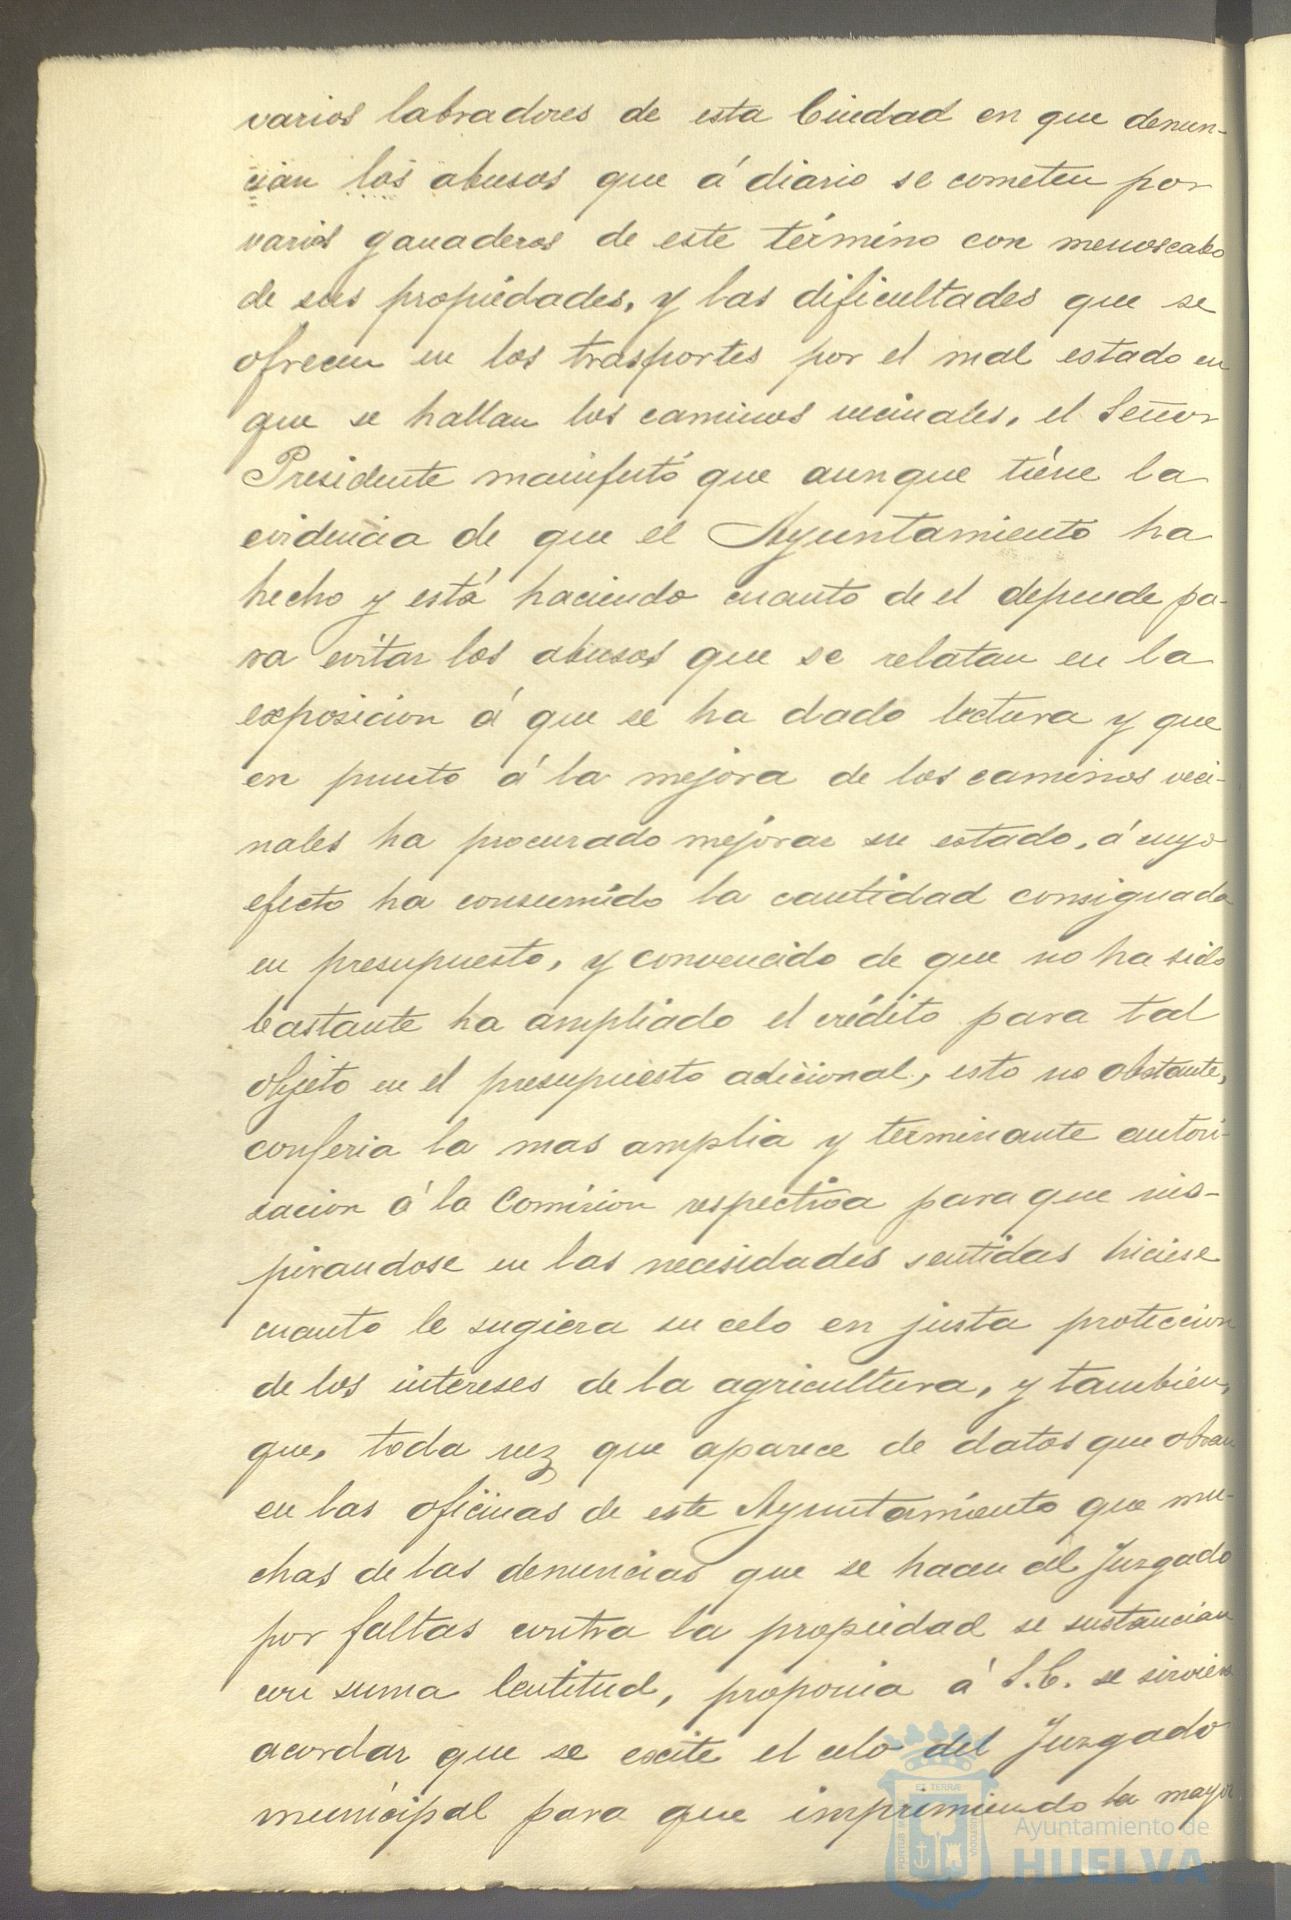 varios labradores de esta Ciudad en que denun-
cian los abusos que á diario se cometen por
varios ganaderos de este término con menoscabo
de sus propiedades, y las dificultades que se
ofrecen en los trasportes por el mal estado en
que se hallan los caminos vecinales, el Señor
Presidente manifestó que aunque tiene la
evidencia de que el Ayuntamiento ha
hecho y está haciendo cuanto de el depende pa-
ra evitar los abusos que se relatan en la
exposicion á que se ha dado lectura y que
en punto á la mejora de los caminos veci-
nales ha procurado mejorar su estado, á cuyo
efecto ha consumido la cantidad consignada
en presupuesto, y convencido de que no ha sido
bastante ha ampliado el crédito para tal
objeto en el presupuesto adicional, esto no obstante,
conferia la mas amplia y terminante autori-
zacion á la Comision respectiva para que ins-
pirandose en las necesidades sentidas hiciese
cuanto le sugiera su celo en justa proteccion
de los intereses de la agricultura, y tambien,
que, toda vez que aparece de datos que obran
en las oficinas de este Ayuntamiento que mu-
chas de las denuncias que se hacen al Juzgado
por faltas contra la propiedad se sustancian
con suma lentitud, proponia á S.E. se sirviera
acordar que se escite el celo del Juzgado
municipal para que imprimiendo la mayor
ET TERRÆ
PORTUS M
CUSTODIA
Ayuntamiento de
HUELVA